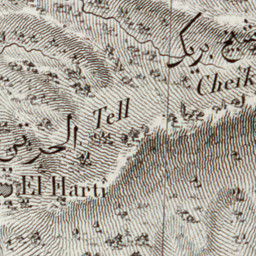 شيخ بريك
Cheik
Tell
الحرتي
El Harti